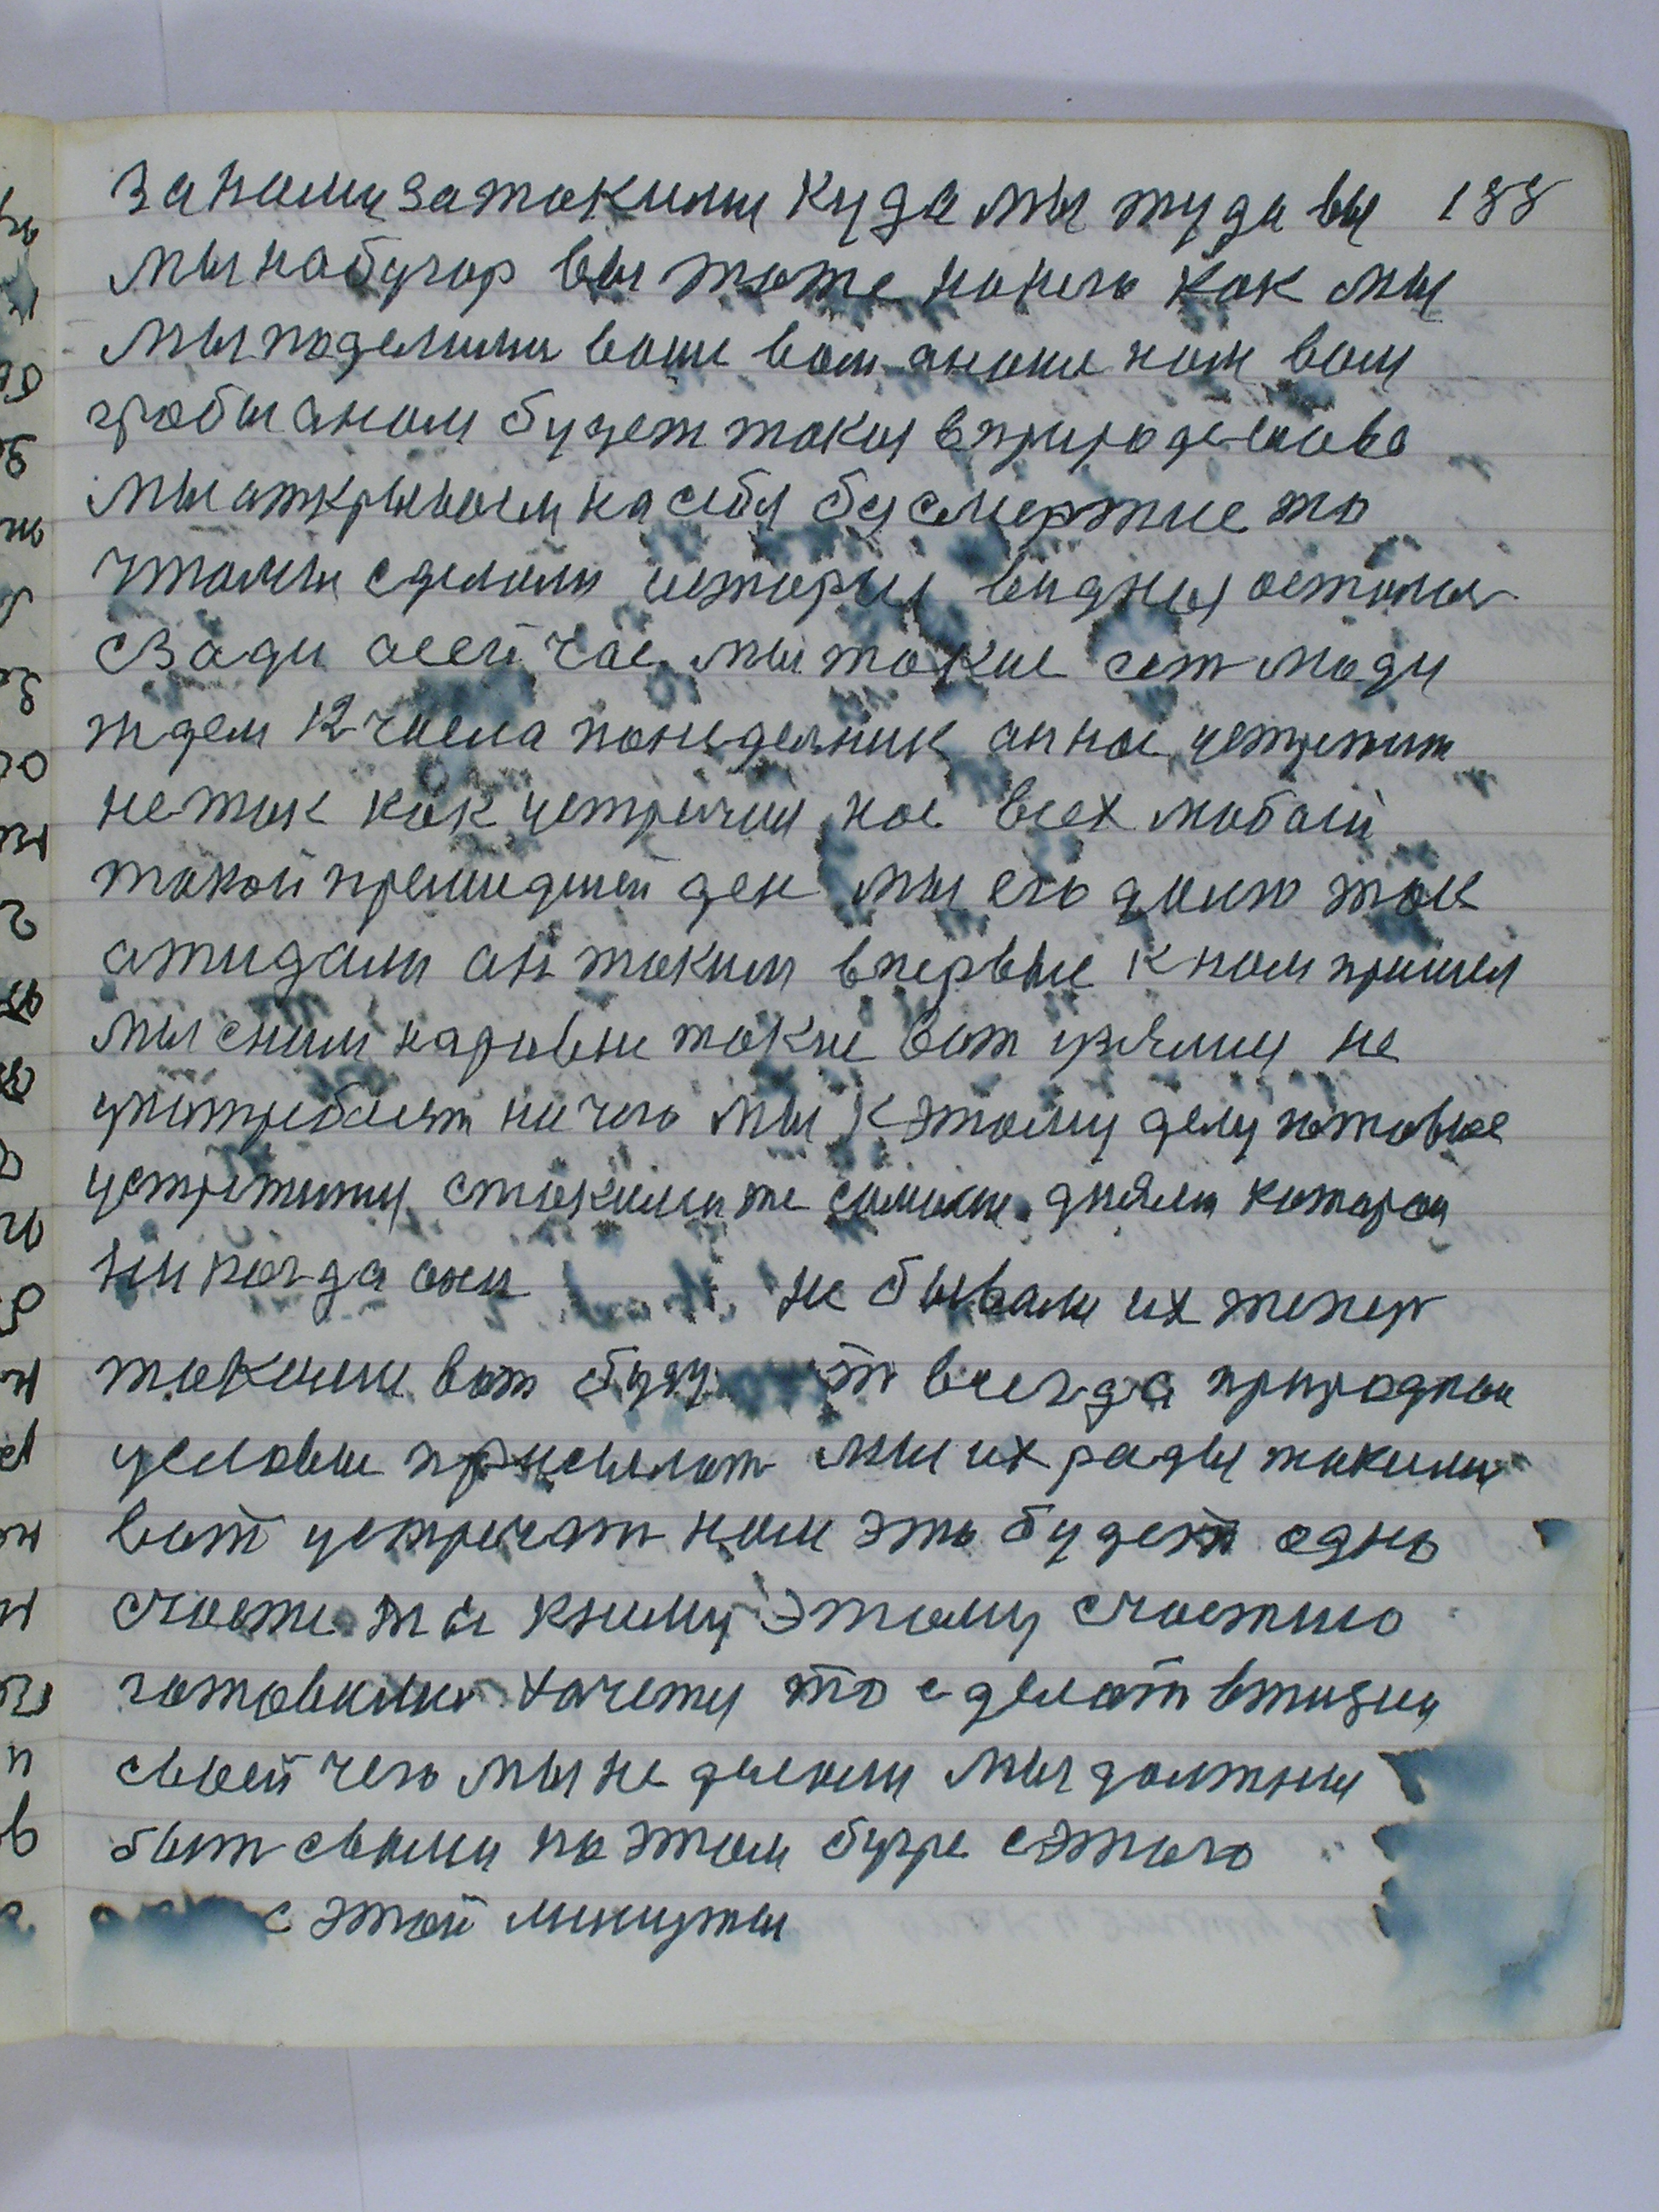 занами затакими куда мы туда вы 188
мы набугор вы тоже нанего как мы
мы поделими ваше вам анаше нам вам
гробы анам будет такая вприроде слава
мы открываем на себя бусмертие то
чтомы сделали история видная остался
сзади асейчас мы такие ест люди
ждем 12 числа понеделник он нас устретит
не так как устречал нас всех любой
такой прешедшей ден мы его давно так
ажидали он таким впервые к нам пришел
мы сним наровне такие вот узяли не
употребляем ничего мы к этому делу готовые
устретитй стакими же самыми днями каторои
никогда они не бывали их тепер
такими вот буду т всегда природныи
условие присылат мы их рады такими
вот устречат нам это будет одно
счастие мы книму этому счастию
готовимы хочем то сделат вжизни
своей чего мы не делали мы должны
быт своими на этом бугре сэтого
с этой минуты